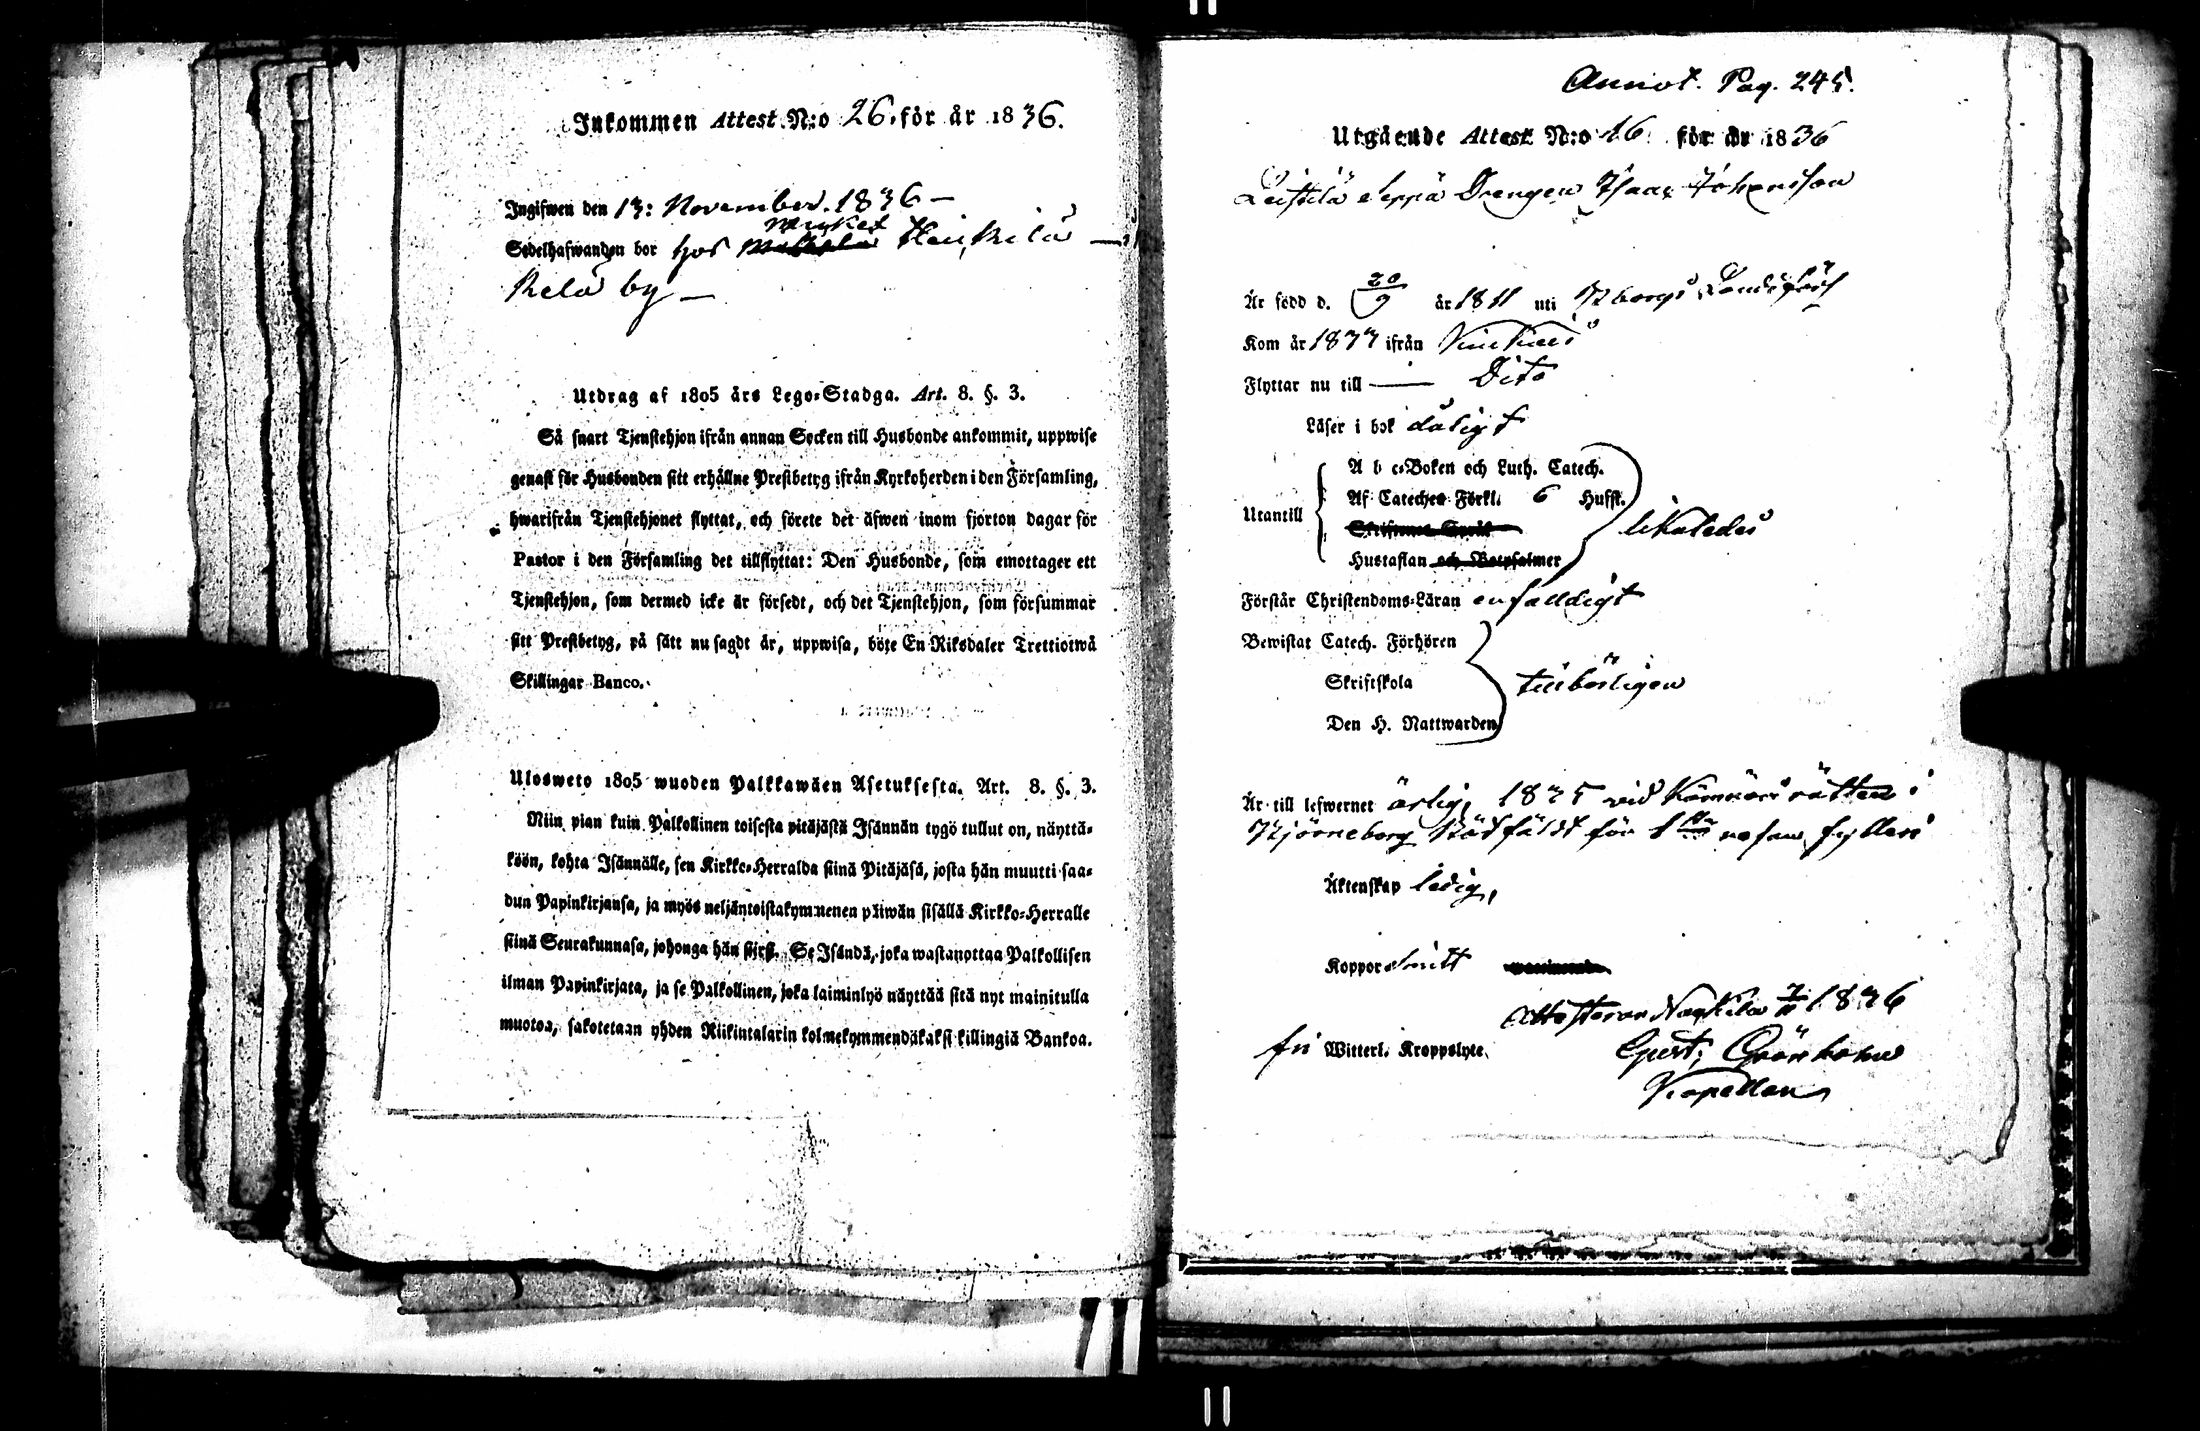 Inkommen Attest N:o 26. för år 1836.
Ingifwen den 13: November. 1836 —
Sedelhafwanden bor hos Heikkilä —
Kelä by —
Utdrag af 1805 års Lego-Stadga. Art. 8. §. 3.
Så snart Tjenstehjon ifrån annan Socken till Husbonde ankommit, uppwise
genast för Husbonden sitt erhållne Prestbetyg ifrån Kyrkoherden i den Församling,
hwarifrån Tjenstehjonet flyttat, och förete det äfwen inom fjorton dagar för
Pastor i den Församling det tillflyttat: Den Husbonde, som emottager ett
Tjenstehjon, som dermed icke är försedt, och det Tjenstehjon, som försummar
sitt Prestbetyg, på sätt nu sagdt är, uppwisa, böte En Riksdaler Trettiotwå
Skillingar Banco.
Ulosweto 1805 wuoden Palkkawäen Asetuksesta. Art. 8. §. 3.
Niin pian kuin Palkollinen toisesta pitäjästä Isännän tygö tullut on, näyttä-
köön, kohta Isännälle, sen Kirkko-Herralda siinä Pitäjäsä, josta hän muutti saa-
dun Papinkirjansa, ja myös neljäntoistakymmenen päiwän sisällä Kirkko-Herralle
siinä Seurakunnasa, johonga hän siirsi. Se Isändä, joka wastanottaa Palkollisen
ilman Papinkirjata, ja se Palkollinen, joka laiminlyö näyttää sitä nyt mainitulla
muotoa, sakotetaan yhden Riikintalarin kolmekymmendäkaksi killingiä Bankoa.
Annot. Pag. 245.
Utgående Attest N:o 16 för år 1836
Leistilä Seppä Drengen Isaac Johansson
Är född d. 20/9 år 1811 uti Bborgs Landsförs
Kom år 1833 ifrån
Flyttar nu till — Dito
Läser i bok dåligt
Utantill
A b c-Boken och Luth. Catech.
Af Cateches Förkl. 6 Hufst.
Hustaflan och Botpsalmer
likaledes
Förstår Christendoms-Läran enfalldigt
Bewistat Catech. Förhören
Skriftskola
Den H. Nattwarden
tillbörligen
Är till lefwernet ärlig, 1835 vid Kämnärs rätten i
Björneborg Bötfäldt för 1sta resan fylleri
Äktenskap ledig,
Koppor smitt
Attesterar Nackila 7/11 1836
fri Witterl. Kroppslyte
Gust. Grönholm
Kapellan